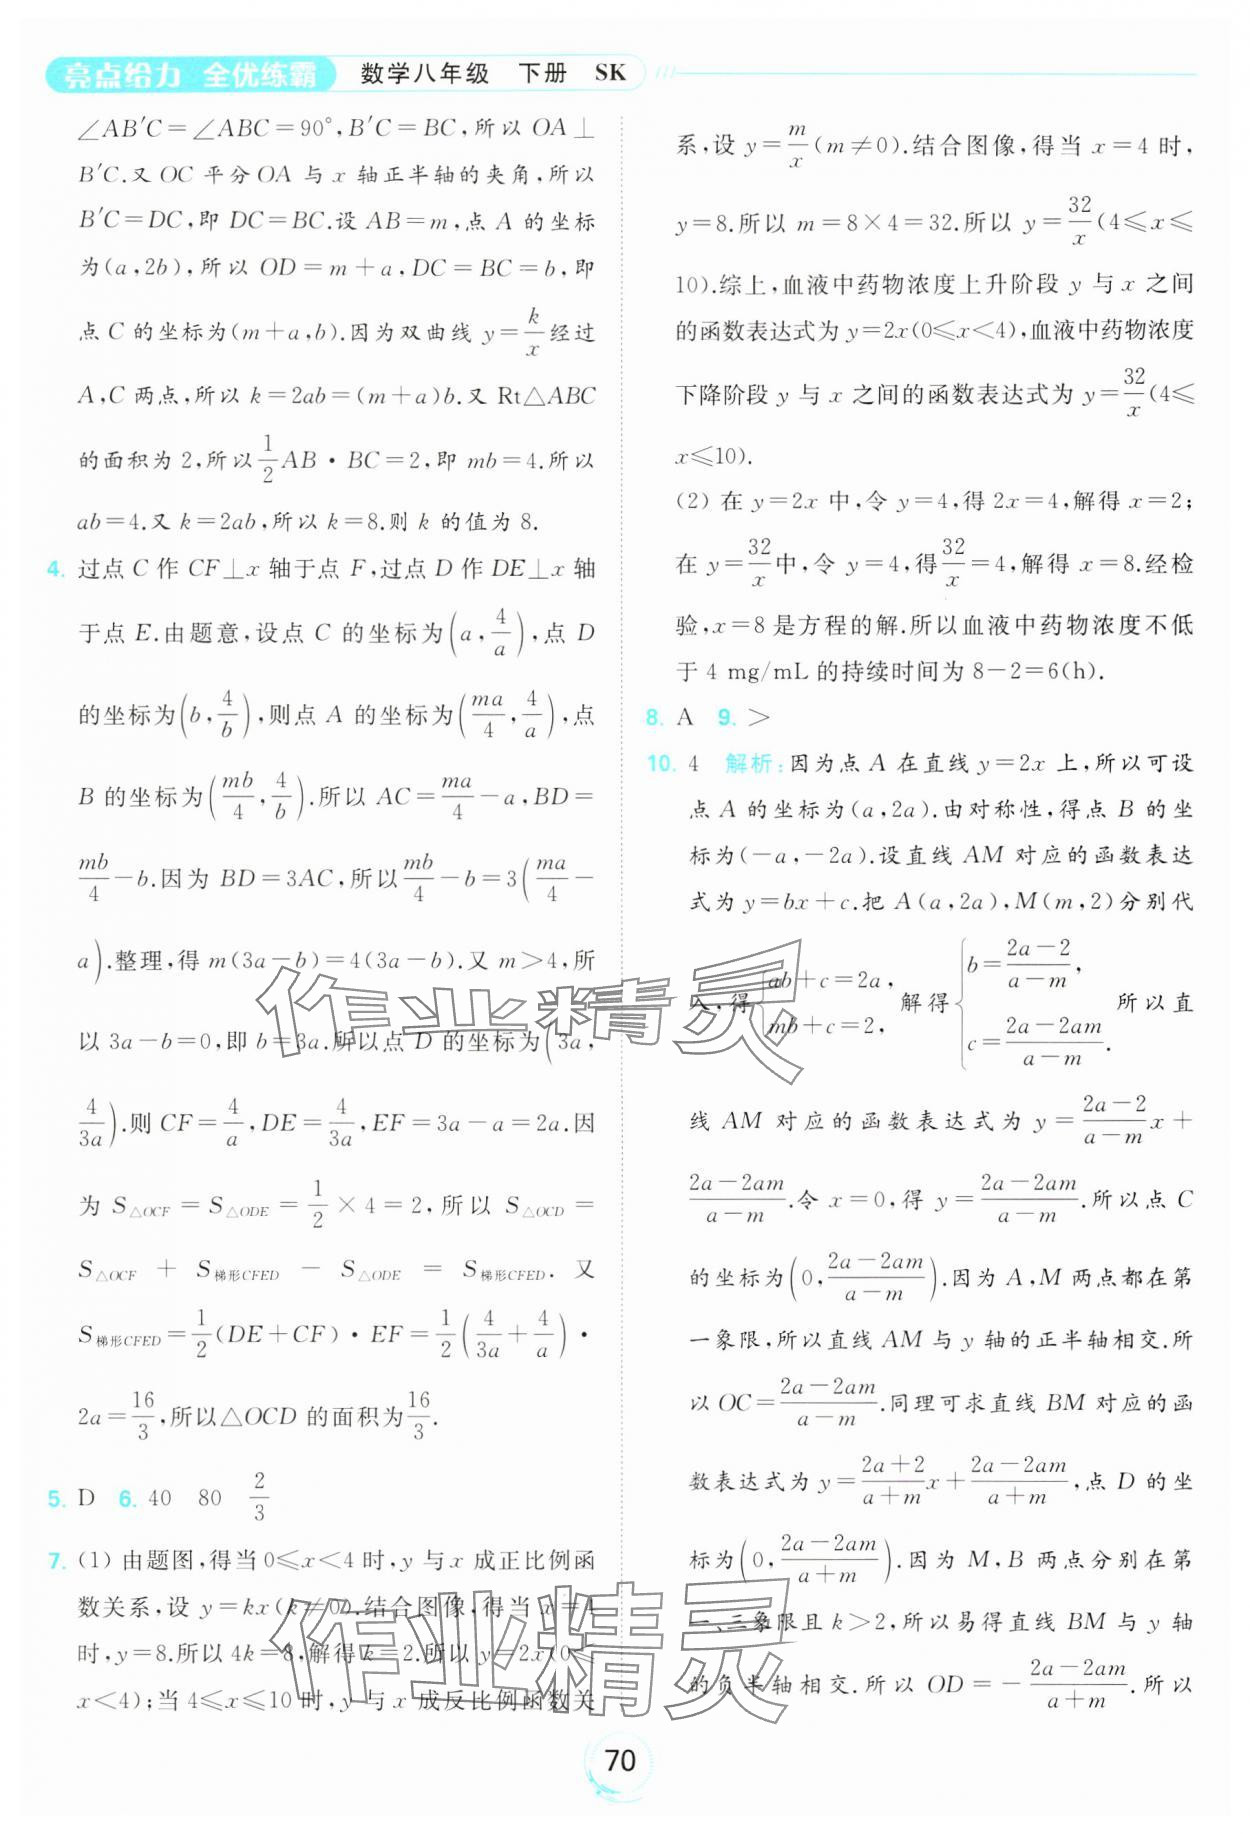 亮点给力 全优练霸 数学八年级 下册 SK
∠AB′C=∠ABC=90°,B′C=BC,所以 OA⊥
B′C.又 OC 平分 OA 与 x 轴正半轴的夹角,所以
B′C=DC,即 DC=BC.设 AB=m,点 A 的坐标
为(a,2b),所以 OD=m+a,DC=BC=b,即
点 C 的坐标为(m+a,b).因为双曲线 y=k/x 经过
A,C 两点,所以 k=2ab=(m+a)b.又 Rt△ABC
的面积为 2,所以 1/2 AB·BC=2,即 mb=4.所以
ab=4.又 k=2ab,所以 k=8.则 k 的值为 8.
4. 过点 C 作 CF⊥x 轴于点 F,过点 D 作 DE⊥x 轴
于点 E.由题意,设点 C 的坐标为(a,4/a),点 D
的坐标为(b,4/b),则点 A 的坐标为(ma/4,4/a),点
B 的坐标为(mb/4,4/b).所以 AC=ma/4-a,BD=
mb/4-b.因为 BD=3AC,所以 mb/4-b=3(ma/4-
a).整理,得 m(3a-b)=4(3a-b).又 m>4,所
以 3a-b=0,即 b=3a.所以点 D 的坐标为(3a,
4/3a).则 CF=4/a,DE=4/3a,EF=3a-a=2a.因
为 S△OCF=S△ODE=1/2×4=2,所以 S△OCD=
S△OCF+S梯形CFED-S△ODE=S梯形CFED.又
S梯形CFED=1/2(DE+CF)·EF=1/2(4/3a+4/a)·
2a=16/3,所以△OCD 的面积为16/3.
5. D 6. 40 80 2/3
7. (1) 由题图,得当 0≤x<4 时,y 与 x 成正比例函
数关系,设 y=kx(k≠0).结合图像,得当 x=4
时,y=8.所以 4k=8,解得 k=2.所以 y=2x(0≤
x<4);当 4≤x≤10 时,y 与 x 成反比例函数关
系,设 y=m/x(m≠0).结合图像,得当 x=4 时,
y=8.所以 m=8×4=32.所以 y=32/x(4≤x≤
10).综上,血液中药物浓度上升阶段 y 与 x 之间
的函数表达式为 y=2x(0≤x<4),血液中药物浓度
下降阶段 y 与 x 之间的函数表达式为 y=32/x(4≤
x≤10).
(2) 在 y=2x 中,令 y=4,得 2x=4,解得 x=2;
在 y=32/x 中,令 y=4,得 32/x=4,解得 x=8.经检
验,x=8 是方程的解.所以血液中药物浓度不低
于 4 mg/mL 的持续时间为 8-2=6(h).
8. A 9. >
10. 4 解析:因为点 A 在直线 y=2x 上,所以可设
点 A 的坐标为(a,2a).由对称性,得点 B 的坐
标为(-a,-2a).设直线 AM 对应的函数表达
式为 y=bx+c.把 A(a,2a),M(m,2)分别代
入,得{ab+c=2a, mb+c=2, 解得{b=(2a-2)/(a-m), c=(2a-2am)/(a-m). 所以直
线 AM 对应的函数表达式为 y=(2a-2)/(a-m) x+
(2a-2am)/(a-m).令 x=0,得 y=(2a-2am)/(a-m).所以点 C
的坐标为(0,(2a-2am)/(a-m)).因为 A,M 两点都在第
一象限,所以直线 AM 与 y 轴的正半轴相交.所
以 OC=(2a-2am)/(a-m).同理可求直线 BM 对应的函
数表达式为 y=(2a+2)/(a+m) x+(2a-2am)/(a+m),点 D 的坐
标为(0,(2a-2am)/(a+m)).因为 M,B 两点分别在第
一、三象限且 k>2,所以易得直线 BM 与 y 轴
的负半轴相交.所以 OD=-(2a-2am)/(a+m).所以
70
作业精灵
作业精灵